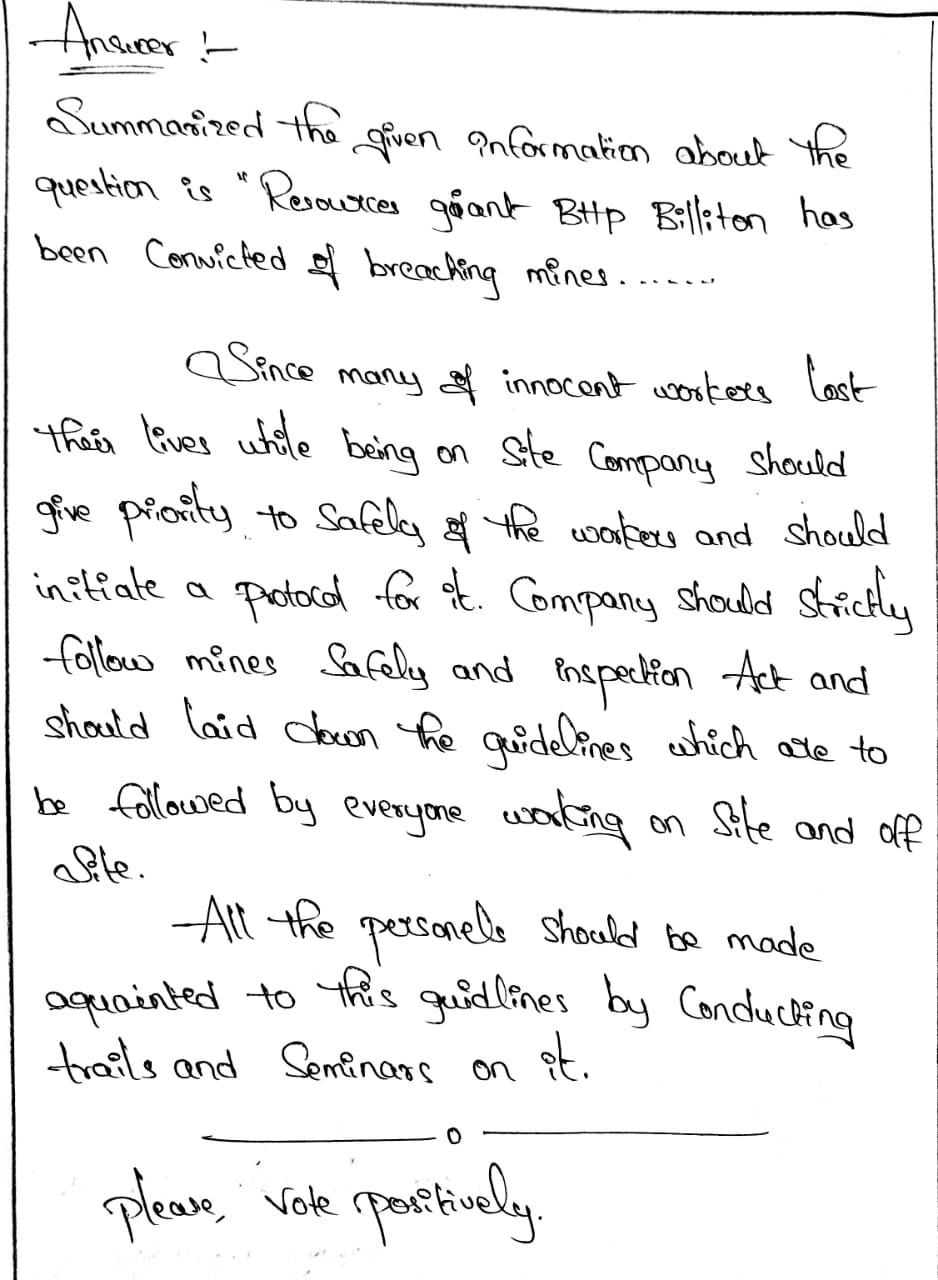 Answer :-
Summarized the given information about the
question is "Resources giant BHP Billiton has
been Convicted of breaching mines.......
Since many of innocent workers lost
their lives while being on Site Company should
give priority to Safety of the workers and should
initiate a protocol for it. Company should strictly
follow mines Safety and inspection Act and
should laid down the guidelines which are to
be followed by everyone working on Site and off
Site.
All the personels should be made
aquainted to this guidlines by Conducting
trails and Seminars on it.
please, vote positively.